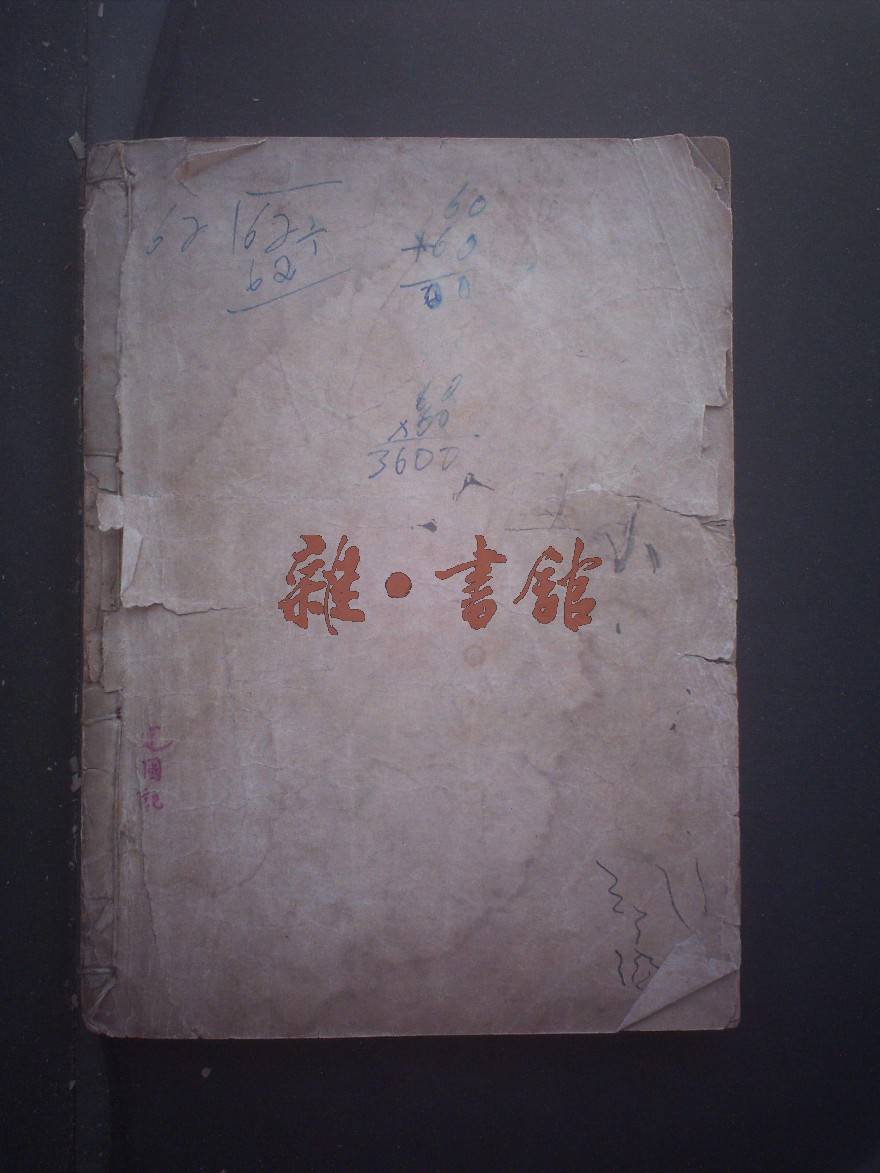 62
162
62
60
+60
00
60
×60
3600
雜·書館
國記